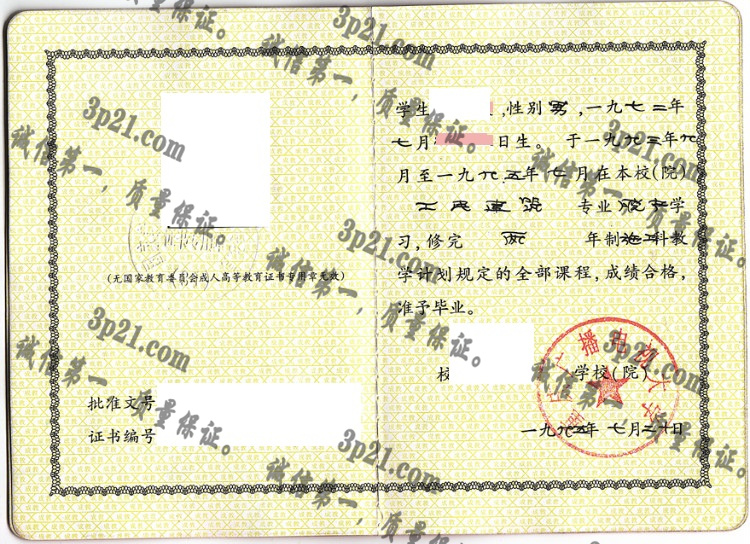 (无国家教育委员会成人高等教育证书专用章无效)
批准文号
证书编号
学生 ,性别男,一九七二年
七月 日生。于一九九三年九
月至一九九五年七月在本校(院)
专业 学
习,修完 两 年制 科教
学计划规定的全部课程,成绩合格,
准予毕业。
校 学校(院)
广播电视大学
一九九五年七月二十日
3p21.com
诚信第一,质量保证。
3p21.com
诚信第一,质量保证。
3p21.com
诚信第一,质量保证。
3p21.com
诚信第一,质量保证。
3p21.com
诚信第一,质量保证。
3p21.com
诚信第一,质量保证。
3p21.com
诚信第一,质量保证。